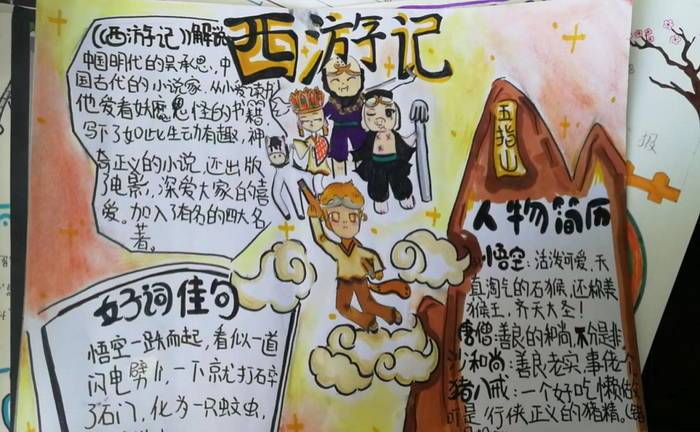 西游记
《西游记》解说
中国明代的吴承恩,中
国古代的小说家,从小爱读书
他爱看妖魔鬼怪的书籍
写下了如此生动有趣,神
奇正义的小说,还出版
了电影,深爱大家的喜
爱。加入了有名的四大名
著。
好词佳句
悟空一跃而起,看似一道
闪电劈下,一下就打碎
了石门,化为一只蚊虫,
五指山
人物简历
悟空:活泼可爱,天
真淘气的石猴,还称美
猴王,齐天大圣!
唐僧:善良的和尚,不分是非
沙和尚:善良老实,事佬个
猪八戒:一个好吃懒做
可是行侠正义的猪精。
报